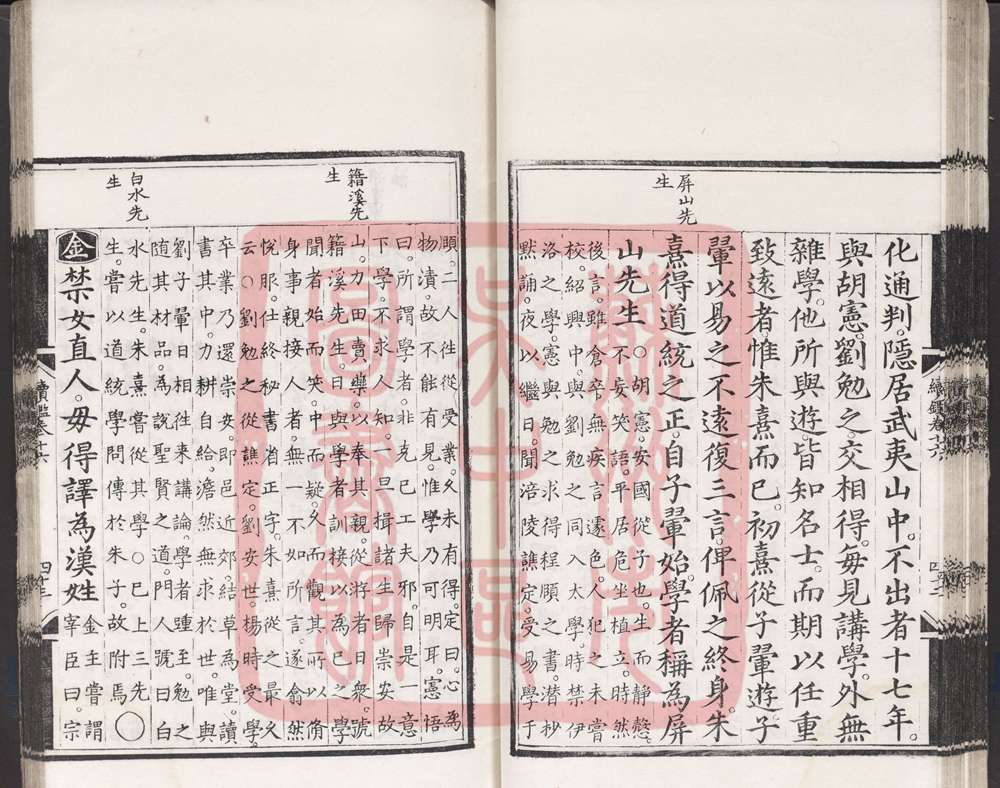 屏山先
生
化通判。隱居武夷山中。不出者十七年。
與胡憲。劉勉之。交相得。每見講學。外無
雜學。他所與遊。皆知名士。而期以任重
致遠者。惟朱熹而已。初熹從子翬遊。子
翬以易之不遠復三言。俾佩之終身。朱
熹得道統之正。自子翬始。學者稱為屏
山先生。
○胡憲。安國從子也。生而靜慤。
不妄笑語。平居危坐植立。時然
後言。雖倉卒。無疾言遽色。人犯之。未嘗
校。紹興中。與劉勉之同入太學。時禁伊
洛之學。憲與勉之求得程頤之書。潛抄
默誦。夜以繼日。聞涪陵譙定受易學于
籍溪先
生
白水先
生
頤。二人往從受業。久未有得。定曰。心為
物漬。故不能有見。惟學乃可明耳。憲悟
曰。所謂學者。非克己工夫邪。自是一意
下學。不求人知。一旦揖諸生歸崇安故
山。力田賣藥。以奉其親。從游者日衆。號
籍溪先生。日與學者訓接以為己之學
聞者始而笑。中而疑。久而觀其所以脩
身事親接人者。無一不如所言。遂翕然
悅服。仕終秘書省正字。朱熹從之最久
云。○劉勉之從譙定。劉安世。楊時受學。
卒業。乃還崇安。即邑近郊。結草為堂。讀
書其中。力耕自給。澹然無求於世。唯與
劉子翬日相往來講論。學者踵至。勉之
隨其材品。為說聖賢之道。門人號曰白
水先生。朱熹嘗從其學。○已上三先
生。嘗以道統學問傳於朱子。故附焉○
金禁女直人。毋得譯為漢姓
金主嘗謂
宰臣曰。宗
續鑑卷十六